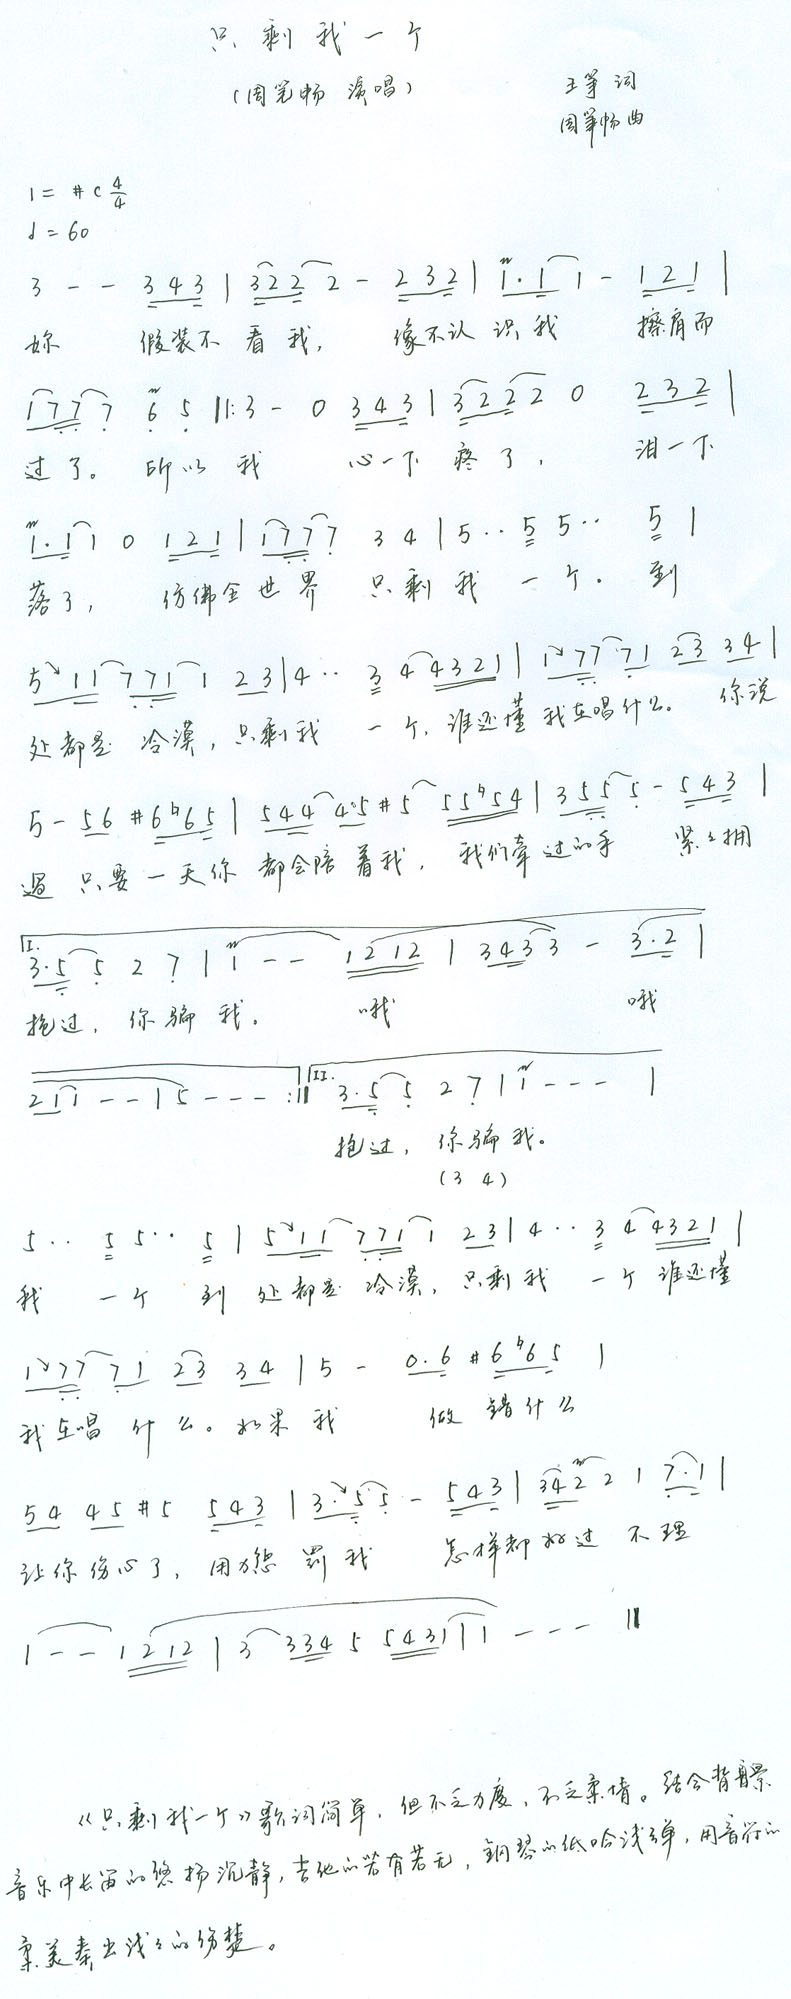 只剩我一个
(周笔畅 演唱)
王筝 词
周笔畅 曲
1= #c 4/4
♩=60
3 - - 3 4 3 | 3 2 2 2 - 2 3 2 | 1 · 1 1 - 1 2 1 |
妳 假装不看我, 像不认识我 擦肩而
1 7 7 7 6 5 ||: 3 - 0 3 4 3 | 3 2 2 2 0 2 3 2 |
过了。所以我 心一下疼了, 泪一下
1 · 1 1 0 1 2 1 | 1 7 7 7 3 4 | 5 · · 5 5 · · 5 |
落了, 仿佛全世界 只剩我 一个. 到
5 1 1 7 7 1 1 2 3 | 4 · · 3 4 4 3 2 1 | 1 7 7 7 1 2 3 3 4 |
处都是冷漠, 只剩我 一个, 谁还懂我在唱什么。 你说
5 - 5 6 #6 ♮6 5 | 5 4 4 4 5 #5 5 5 ♮5 4 | 3 5 5 5 - 5 4 3 |
过 只要一天你 都会陪着我, 我们牵过的手 紧々拥
I. 3 · 5 5 2 7 | 1 - - 1 2 1 2 | 3 4 3 3 - 3 · 2 |
抱过, 你骗我。 哦 哦
2 1 1 - - | 5 - - - :|| II. 3 · 5 5 2 7 | 1 - - - |
抱过, 你骗我。
(3 4)
5 · · 5 5 · · 5 | 5 1 1 7 7 1 1 2 3 | 4 · · 3 4 4 3 2 1 |
我 一个 到处都是冷漠, 只剩我 一个 谁还懂
1 7 7 7 1 2 3 3 4 | 5 - 0 · 6 #6 ♮6 5 |
我在唱什么。如果我 做错什么
5 4 4 5 #5 5 4 3 | 3 · 5 5 - 5 4 3 | 3 4 2 2 1 7 · 1 |
让你伤心了, 用力惩罚我 怎样都好过不理
1 - - 1 2 1 2 | 3 3 3 4 5 5 4 3 1 | 1 - - - ||
《只剩我一个》歌词简单, 但不乏力度, 不乏柔情。结合背景
音乐中长笛的悠扬沉静, 吉他的若有若无, 钢琴的低吟浅弹, 用音符的
柔美奏出浅々的伤楚。